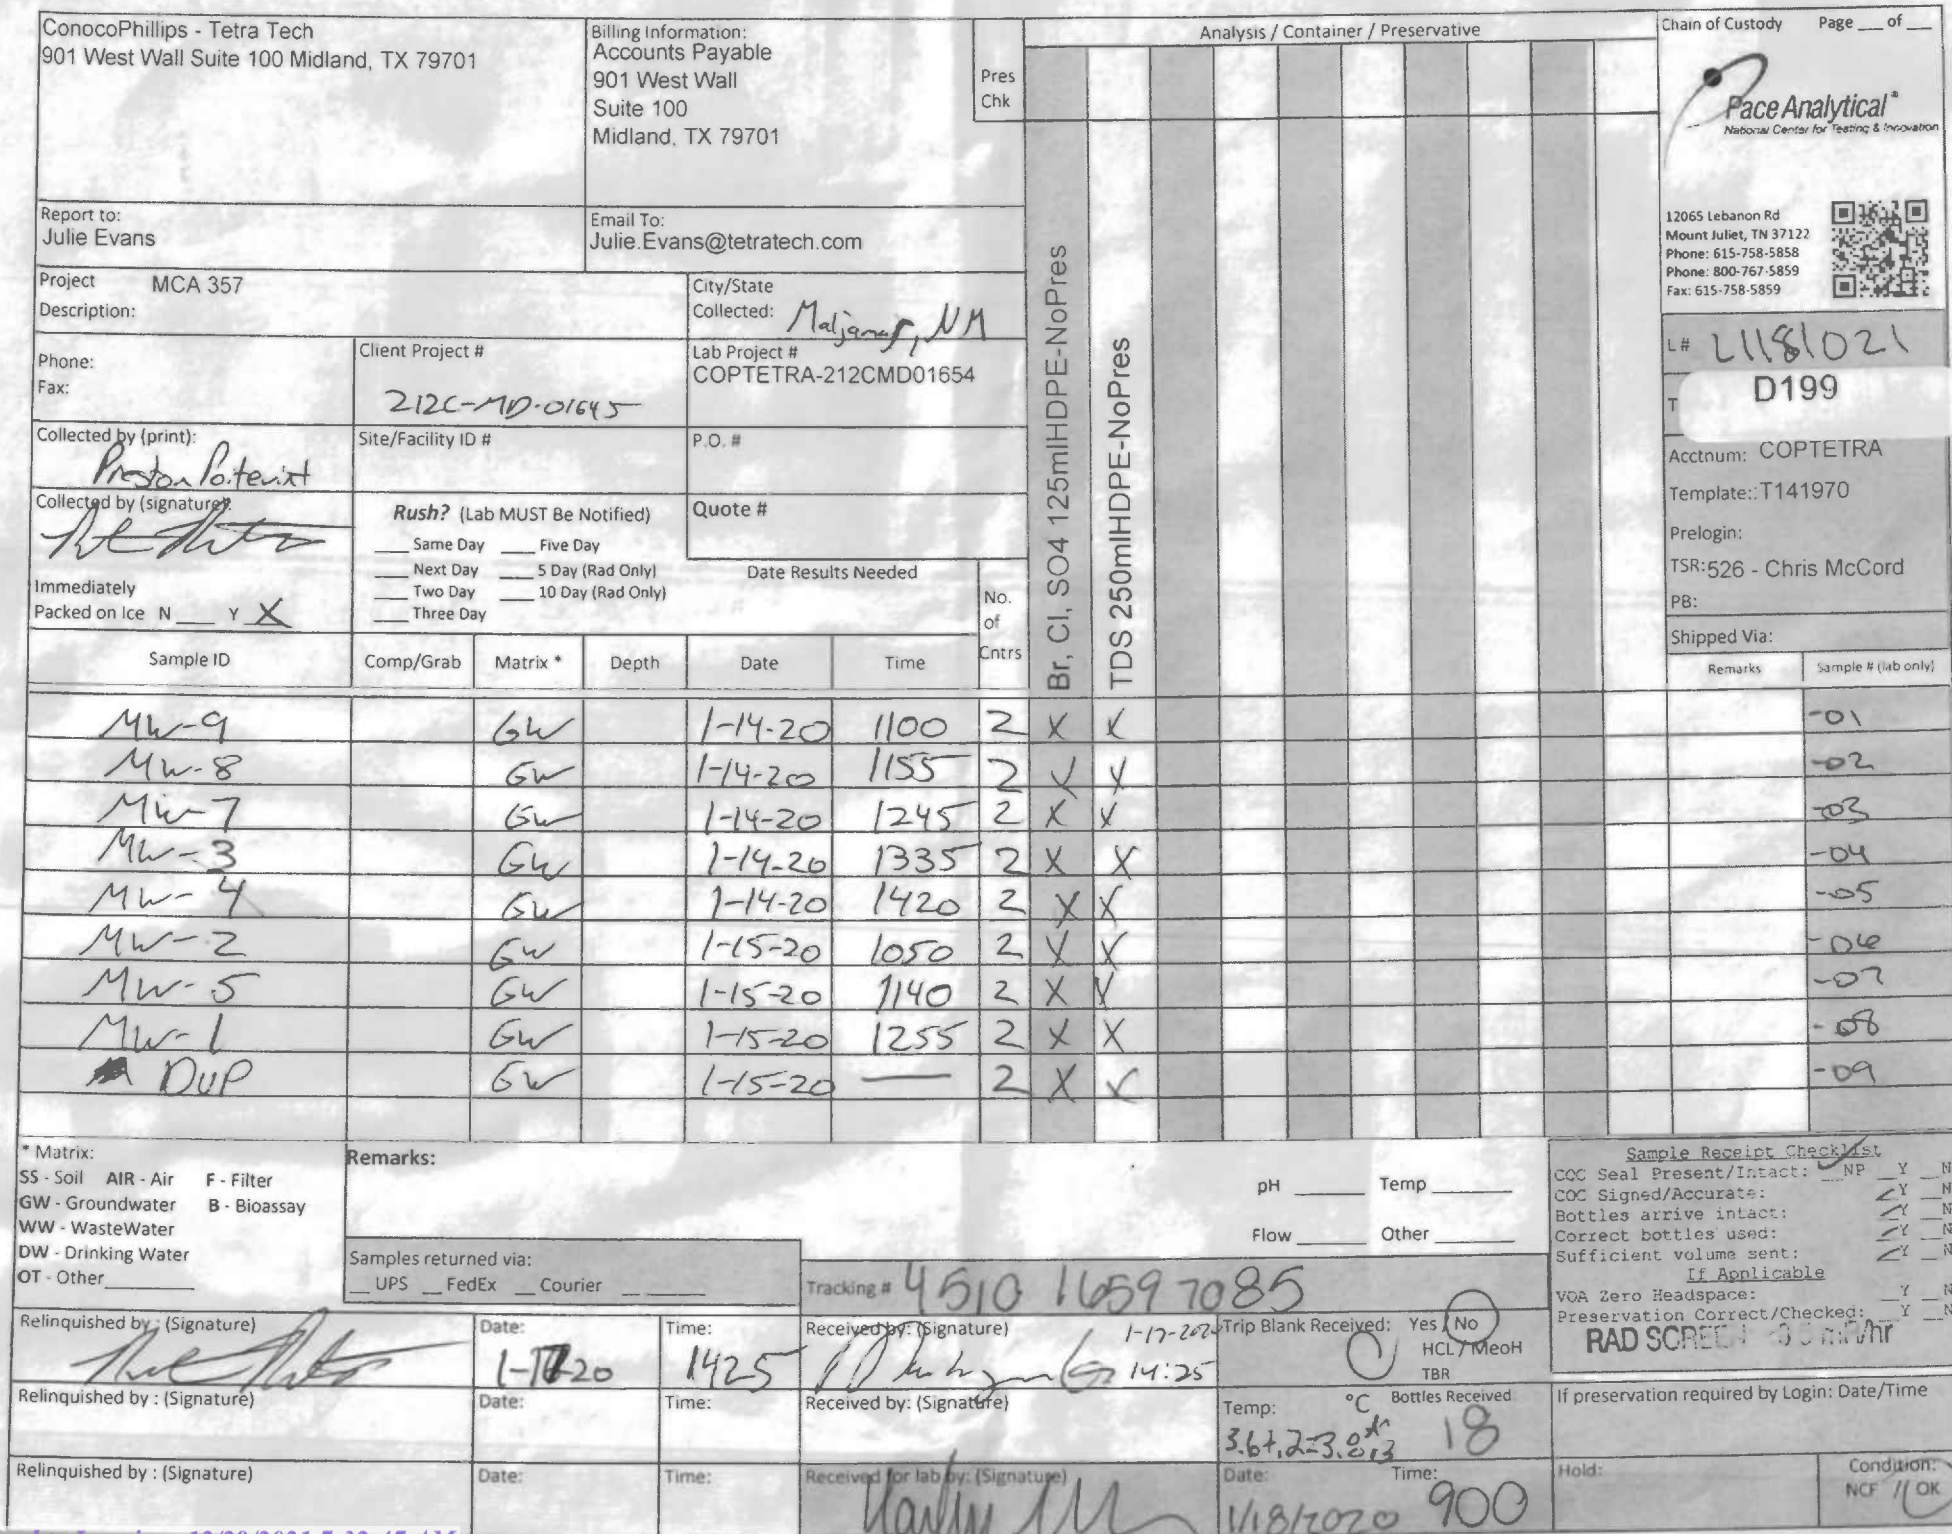 ConocoPhillips - Tetra Tech
901 West Wall Suite 100 Midland, TX 79701
Billing Information:
Accounts Payable
901 West Wall
Suite 100
Midland, TX 79701
Pres
Chk
Analysis / Container / Preservative
Chain of Custody Page ___ of ___
Pace Analytical®
National Center for Testing & Innovation
12065 Lebanon Rd
Mount Juliet, TN 37122
Phone: 615-758-5858
Phone: 800-767-5859
Fax: 615-758-5859
Report to:
Julie Evans
Email To:
Julie.Evans@tetratech.com
Project MCA 357
Description:
City/State
Collected: Maljamar, NM
Phone:
Fax:
Client Project #
212C-MD-01645
Lab Project #
COPTETRA-212CMD01654
L# L1181021
T D199
Collected by (print):
Preston
Site/Facility ID #
P.O. #
Acctnum: COPTETRA
Template: T141970
Prelogin:
TSR: 526 - Chris McCord
PB:
Shipped Via:
Collected by (signature):
Rush? (Lab MUST Be Notified)
___ Same Day ___ Five Day
___ Next Day ___ 5 Day (Rad Only)
___ Two Day ___ 10 Day (Rad Only)
___ Three Day
Quote #
Date Results Needed
Immediately
Packed on Ice N ___ Y X
No.
of
Cntrs
Br, Cl, SO4 125mlHDPE-NoPres
TDS 250mlHDPE-NoPres
Sample ID Comp/Grab Matrix * Depth Date Time Remarks Sample # (lab only)
MW-9 GW 1-14-20 1100 2 X X -01
MW-8 GW 1-14-20 1155 2 X X -02
MW-7 GW 1-14-20 1245 2 X X -03
MW-3 GW 1-14-20 1335 2 X X -04
MW-4 GW 1-14-20 1420 2 X X -05
MW-2 GW 1-15-20 1050 2 X X -06
MW-5 GW 1-15-20 1140 2 X X -07
MW-1 GW 1-15-20 1255 2 X X -08
DUP GW 1-15-20 — 2 X X -09
* Matrix:
SS - Soil AIR - Air F - Filter
GW - Groundwater B - Bioassay
WW - WasteWater
DW - Drinking Water
OT - Other
Remarks:
pH ___ Temp ___
Flow ___ Other ___
Samples returned via:
__ UPS __ FedEx __ Courier
Tracking # 4510 1659 7085
Sample Receipt Checklist
COC Seal Present/Intact: NP Y N
COC Signed/Accurate: Y N
Bottles arrive intact: Y N
Correct bottles used: Y N
Sufficient volume sent: Y N
If Applicable
VOA Zero Headspace: Y N
Preservation Correct/Checked: Y N
RAD SCREEN mR/hr
Relinquished by : (Signature)
Date:
1-17-20
Time:
1425
Received by: (Signature)
1-17-2020
14:25
Trip Blank Received: Yes / No
HCL / MeoH
TBR
Relinquished by : (Signature)
Date:
Time:
Received by: (Signature)
Temp: °C Bottles Received:
3.6+.2=3.8 18
If preservation required by Login: Date/Time
Relinquished by : (Signature)
Date:
Time:
Received for lab by: (Signature)
Date:
1/18/2020
Time:
900
Hold:
Condition:
NCF / OK